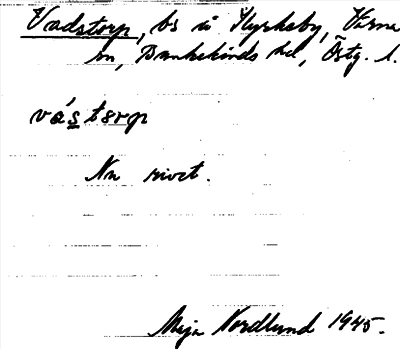 Vadstorp, bs u Kyrkeby, Värna
sn, Bankekinds hd, Östg. l.
vás̲tsrp
Nu rivet.
Maja Nordlund 1945.